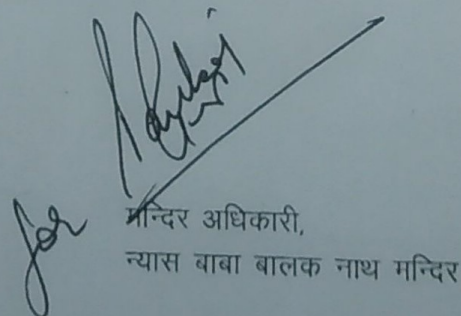 for मन्दिर अधिकारी,
न्यास बाबा बालक नाथ मन्दिर